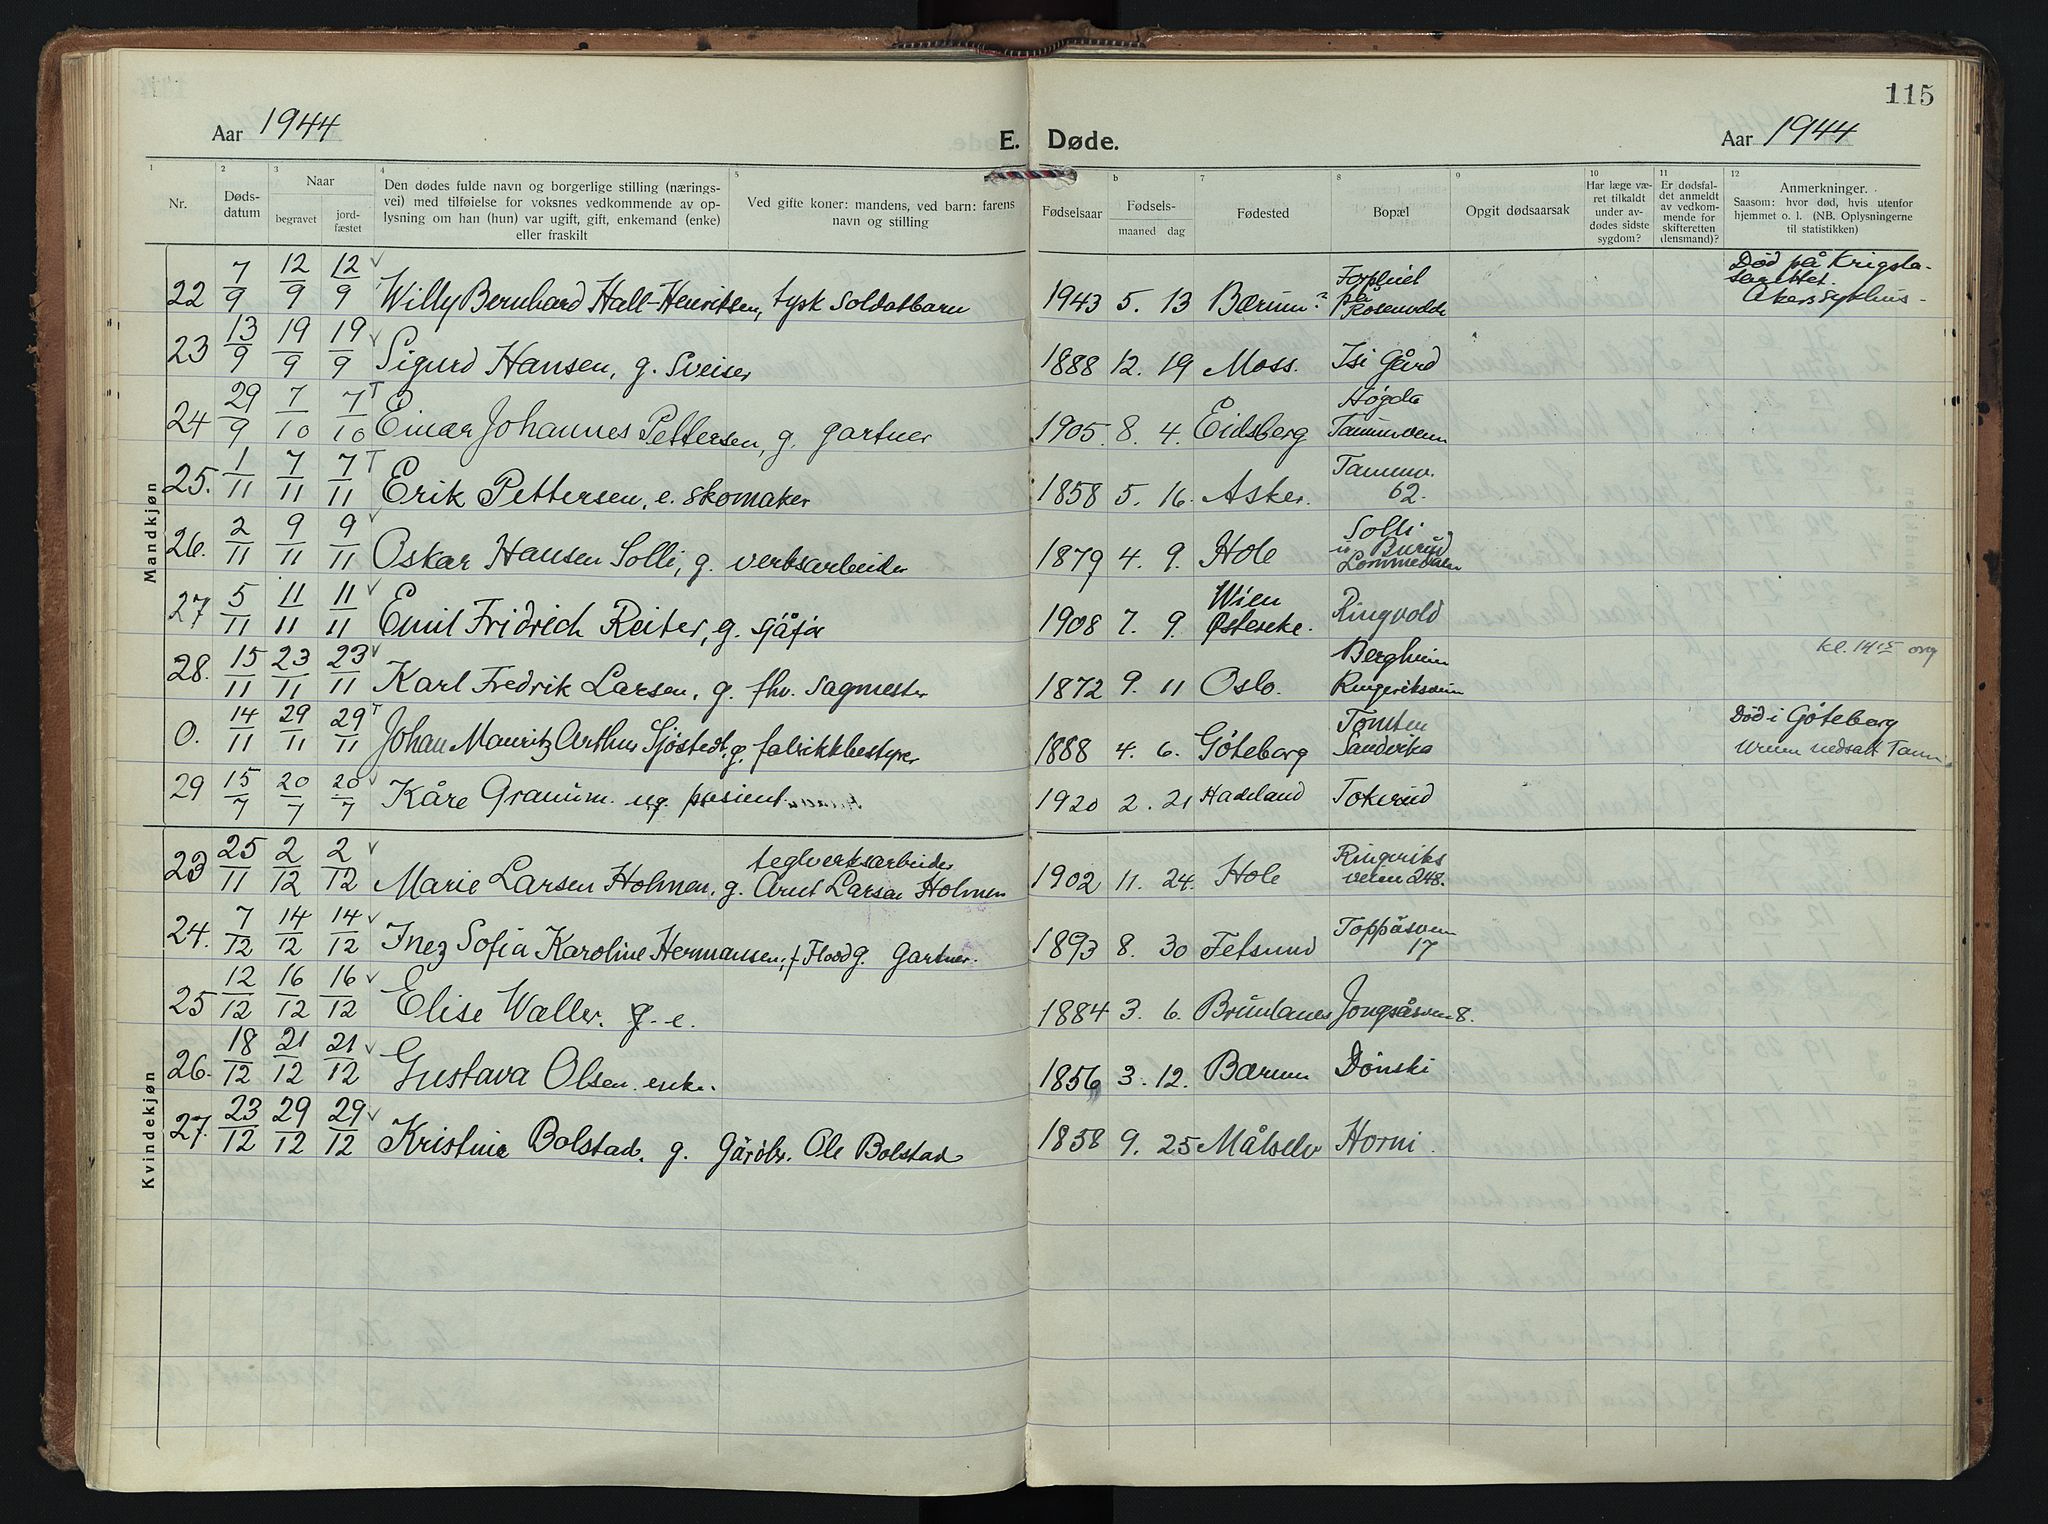 115
Aar 1944 E. Døde. Aar 1944
1 2 3 4 5 b 7 8 9 10 11 12
Nr. Døds-datum Naar begravet jord-fæstet
Den dødes fulde navn og borgerlige stilling (nærings-
vei) med tilføielse for voksnes vedkommende av op-
lysning om han (hun) var ugift, gift, enkemand (enke)
eller fraskilt
Ved gifte koner: mandens, ved barn: farens
navn og stilling
Fødselsaar
Fødsels-
maaned dag
Fødested
Bopæl
Opgit dødsaarsak
Har læge væ-
ret tilkaldt
under av-
dødes sidste
sygdom?
Er dødsfal-
det anmeldt
av vedkom-
mende for
skifteretten
(lensmand)?
Anmerkninger.
Saasom: hvor død, hvis utenfor
hjemmet o. l. (NB. Oplysningerne
til statistikken)
Mandkjøn
22 7/9 12/9 12/9 v Willy Bernhard Hall-Henriksen, tysk soldatbarn 1943 5. 13 Bærum? på Død på Krigsla-
sarettet.
Akers sykehus -
23 13/9 19/9 19/9 v Sigurd Hansen, g. Sveiser 1888 12. 19 Moss. Isi Gård
24 29/9 7/10 7/10 T Einar Johannes Pettersen, g. gartner 1905. 8. 4. Eidsberg Høgda
25. 1/11 7/11 7/11 T Erik Pettersen, e. skomaker 1858 5. 16. Asker. Tanumv.
62.
26. 2/11 9/11 9/11 v Oskar Hansen Solli, g. verksarbeider 1879 4. 9. Hole Solli
Burud
Lommedalen
27 5/11 11/11 11/11 v Emil Fridrich Reiter, g. sjåfør 1908 7. 9. Wien
Østerrike. Ringvold
28. 15/11 23/11 23/11 v Karl Fredrik Larsen, g. fhv. sagmester 1872 9. 11 Oslo. Bergheim
Ringeriksveien kl. 14 15
0. 14/11 29/11 29/11 T Johan Mauritz Arthur Sjöstedt, g. fabrikkbestyrer 1888 4. 6. Göteborg Tomten
Sandvika Död i Göteborg
Urnen nedsatt Tanum
29 15/7 20/7 20/7 v Kåre Granum. ug. pasient 1920 2. 21 Hadeland Tokerud
Kvindekjøn
23 25/11 2/12 2/12 v Marie Larsen Holmen, g. teglverksarbeider
Arnt Larsen Holmen 1902 11. 24. Hole Ringeriks
veien 248.
24. 7/12 14/12 14/12 v Inez Sofia Karoline Hermansen, f Flood g. Gartner. 1893 8. 30 Fetsund Toppåsveien
17
25 12/12 16/12 16/12 v Elise Waller. g. e. 1884 3. 6. Brunlanes Jongsåsveien 8.
26. 18/12 21/12 21/12 v Gustava Olsen enke. 1856 3. 12. Bærum Dønski
27. 23/12 29/12 29/12 v Kristine Bolstad. g. Gårdbr. Ole Bolstad 1858 9. 25 Målselv Horni.